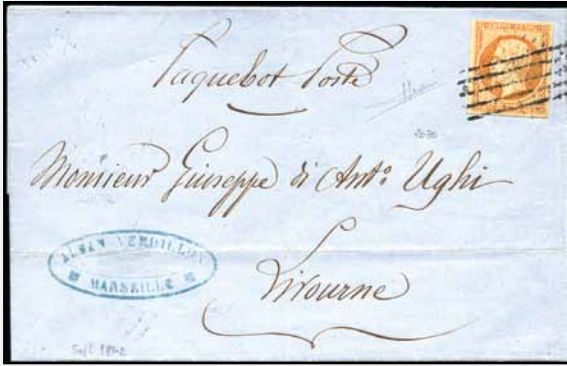 Paquebot Poste
Monsieur Giuseppe di Ant.º Ughi
Livourne
VERDILLON
MARSEILLE